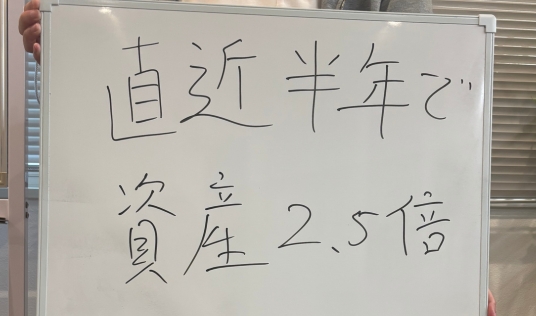 直近半年で
資産2.5倍